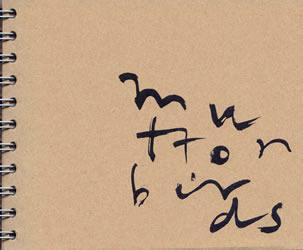 mu
tton
birds